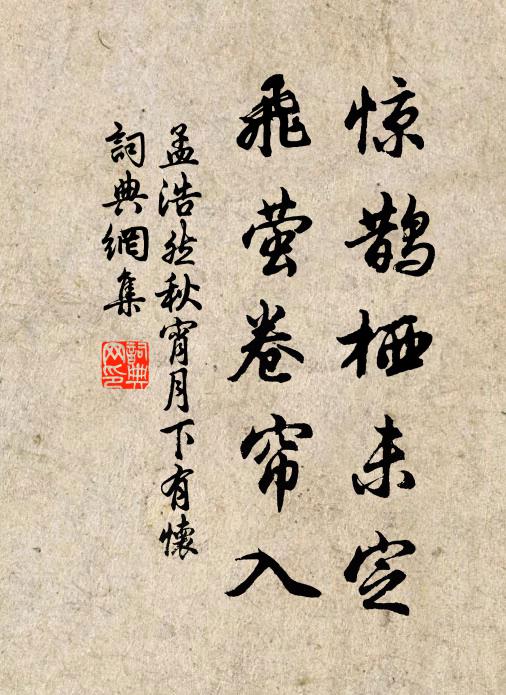 惊鹊栖未定
飞萤卷帘入
孟浩然秋宵月下有怀
詞典網集
詞典网印